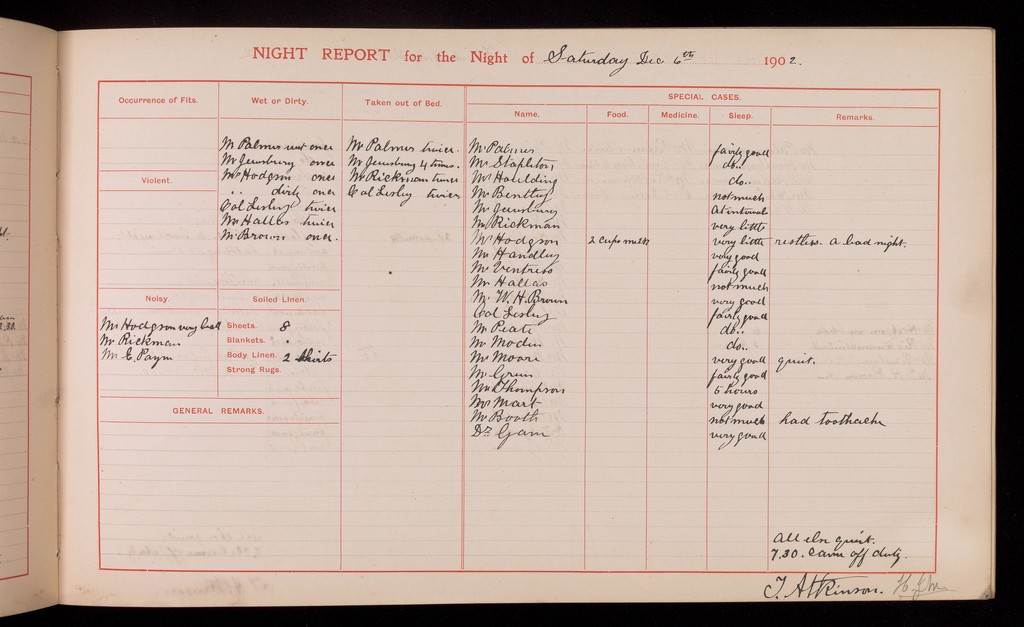 NIGHT REPORT for the Night of Saturday Dec 6th 1902.
Occurrence of Fits.
Violent.
Noisy.
Mr Hodgson very bad
Mr Rickman
Mr E. Payne
Wet or Dirty.
Mr Palmer wet once
Mr Jewsbury once
Mr Hodgson once
" dirty once
Col Lesley twice
Mr Hallas twice
Mr Brown once.
Soiled Linen.
Sheets 8
Blankets. .
Body Linen. 2 shirts
Strong Rugs.
GENERAL REMARKS.
Taken out of Bed.
Mr Palmer twice.
Mr Jewsbury 4 times.
Mr Rickman twice
Col Lesley twice
SPECIAL CASES.
Name. Food. Medicine. Sleep. Remarks.
Mr Palmer fairly good
Mr Stapleton do..
Mr Houlding do..
Mr Bentley not much
Mr Jewsbury At interval
Mr Rickman very little
Mr Hodgson 2 cups milk very little restless. a bad night.
Mr Handley very good
Mr Ventress fairly good
Mr Hallas not much
Mr W. H. Brown very good
Col Lesley fairly good
Mr Peate do..
Mr Moden do..
Mr Moore very good quiet.
Mr Green fairly good
Mr Thompson 5 hours
Mr Mart very good
Mr Booth not much had toothache
Dr Gam very good
All else quiet.
7.30. Came off duty.
T. Atkinson.